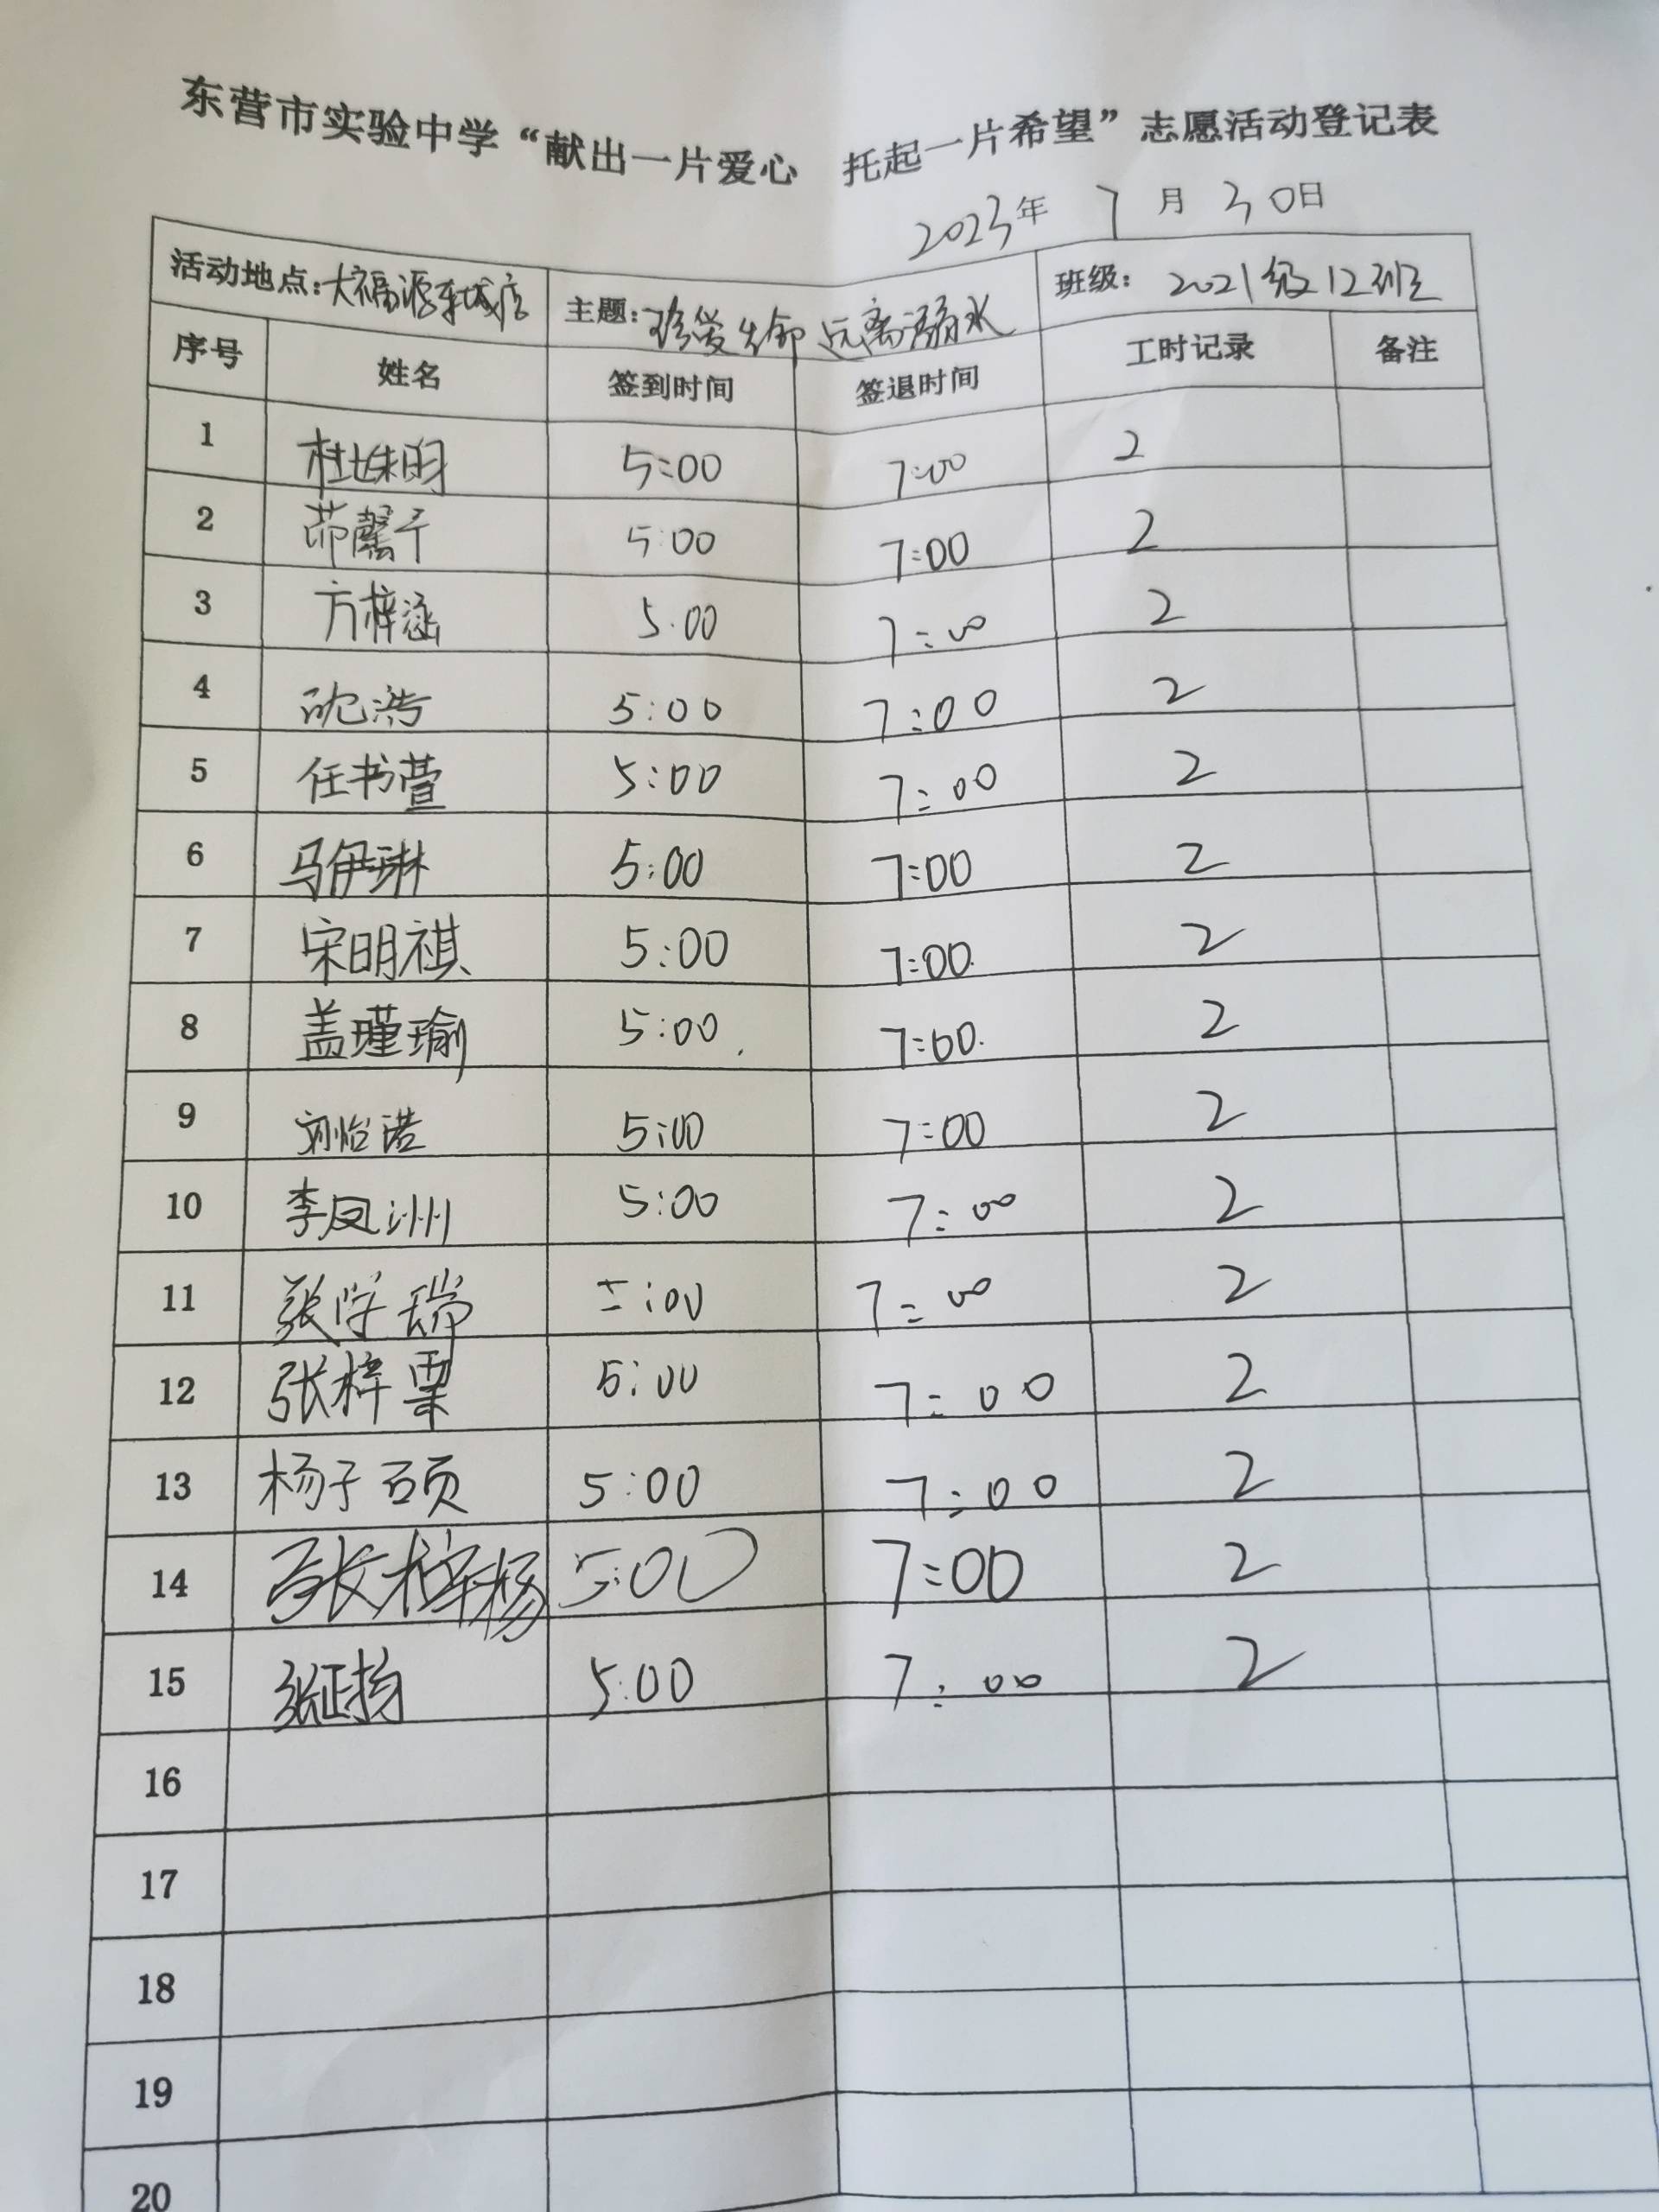 东营市实验中学“献出一片爱心 托起一片希望”志愿活动登记表
2023年 7 月 30日
活动地点:大福源东城店 主题:珍爱生命 远离溺水 班级: 2021级12班
序号 姓名 签到时间 签退时间 工时记录 备注
1 杜姝明 5:00 7:00 2
2 馨 5:00 7:00 2
3 方梓涵 5:00 7:00 2
4 沈浩 5:00 7:00 2
5 任书萱 5:00 7:00 2
6 马伊琳 5:00 7:00 2
7 宋明祺 5:00 7:00 2
8 盖瑾瑜 5:00 7:00 2
9 刘怡诺 5:00 7:00 2
10 李凤洲 5:00 7:00 2
11 张学瑞 5:00 7:00 2
12 张梓栗 5:00 7:00 2
13 杨子硕 5:00 7:00 2
14 张梓杨 5:00 7:00 2
15 张正扬 5:00 7:00 2
16
17
18
19
20